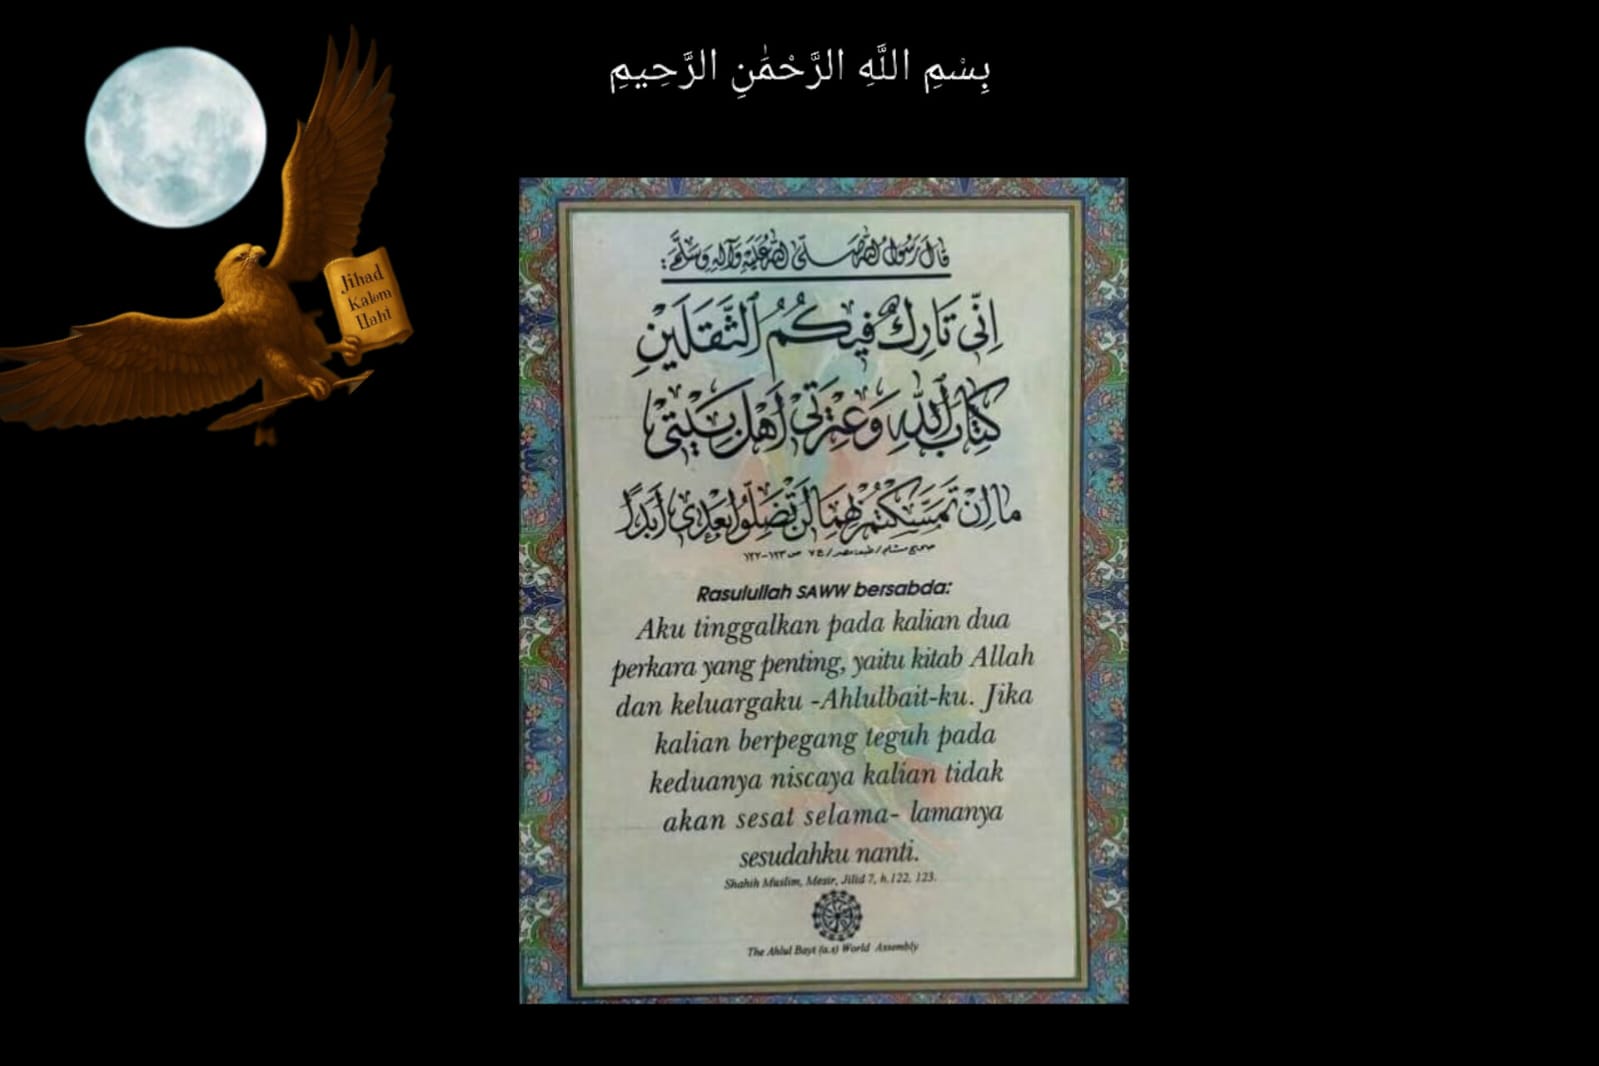 بِسْمِ اللَّهِ الرَّحْمَٰنِ الرَّحِيمِ
Jihad
Kalam
Ilahi
قَالَ رَسُولُ اللهِ صَلَّى اللهُ عَلَيْهِ وَآلِهِ وَسَلَّمَ:
اِنّى تَارِكٌ فِيكُمُ الثَّقَلَيْنِ
كِتَابَ اللهِ وَعِتْرَتى اَهْلَ بَيْتى
مَا اِنْ تَمَسَّكْتُمْ بِهِمَا لَنْ تَضِلُّوا بَعْدِى اَبَدًا
صحيح مسلم / طبع مصر / ج ٧ ص ١٢٣-١٢٢
Rasulullah SAWW bersabda:
Aku tinggalkan pada kalian dua
perkara yang penting, yaitu kitab Allah
dan keluargaku -Ahlulbait-ku. Jika
kalian berpegang teguh pada
keduanya niscaya kalian tidak
akan sesat selama- lamanya
sesudahku nanti.
Shahih Muslim, Mesir, Jilid 7, h.122, 123.
The Ahlul Bayt (a.s) World Assembly